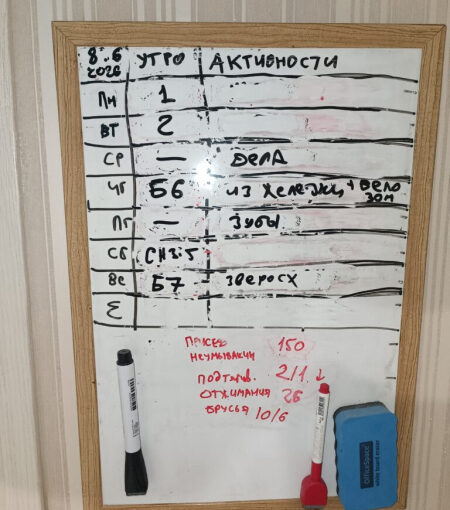 8.6 2026 УТРО АКТИВНОСТИ
ПН 1
ВТ 2
СР — ДЕЛА
ЧТ Б6 ИЗ ЖЕЛЕЗКИ + ВЕЛО
ЗОН
ПТ — ЗУБЫ
СБ СН3:5
ВС Б7 ЗВЕРОСХ
Σ
ПРИСЕД 150
НЕУМЫВАКИ
ПОДТЯГИВ. 2/1 ↓
ОТЖИМАНИЯ 26
БРУСЬЯ 10/6
OfficeSpace
white board eraser